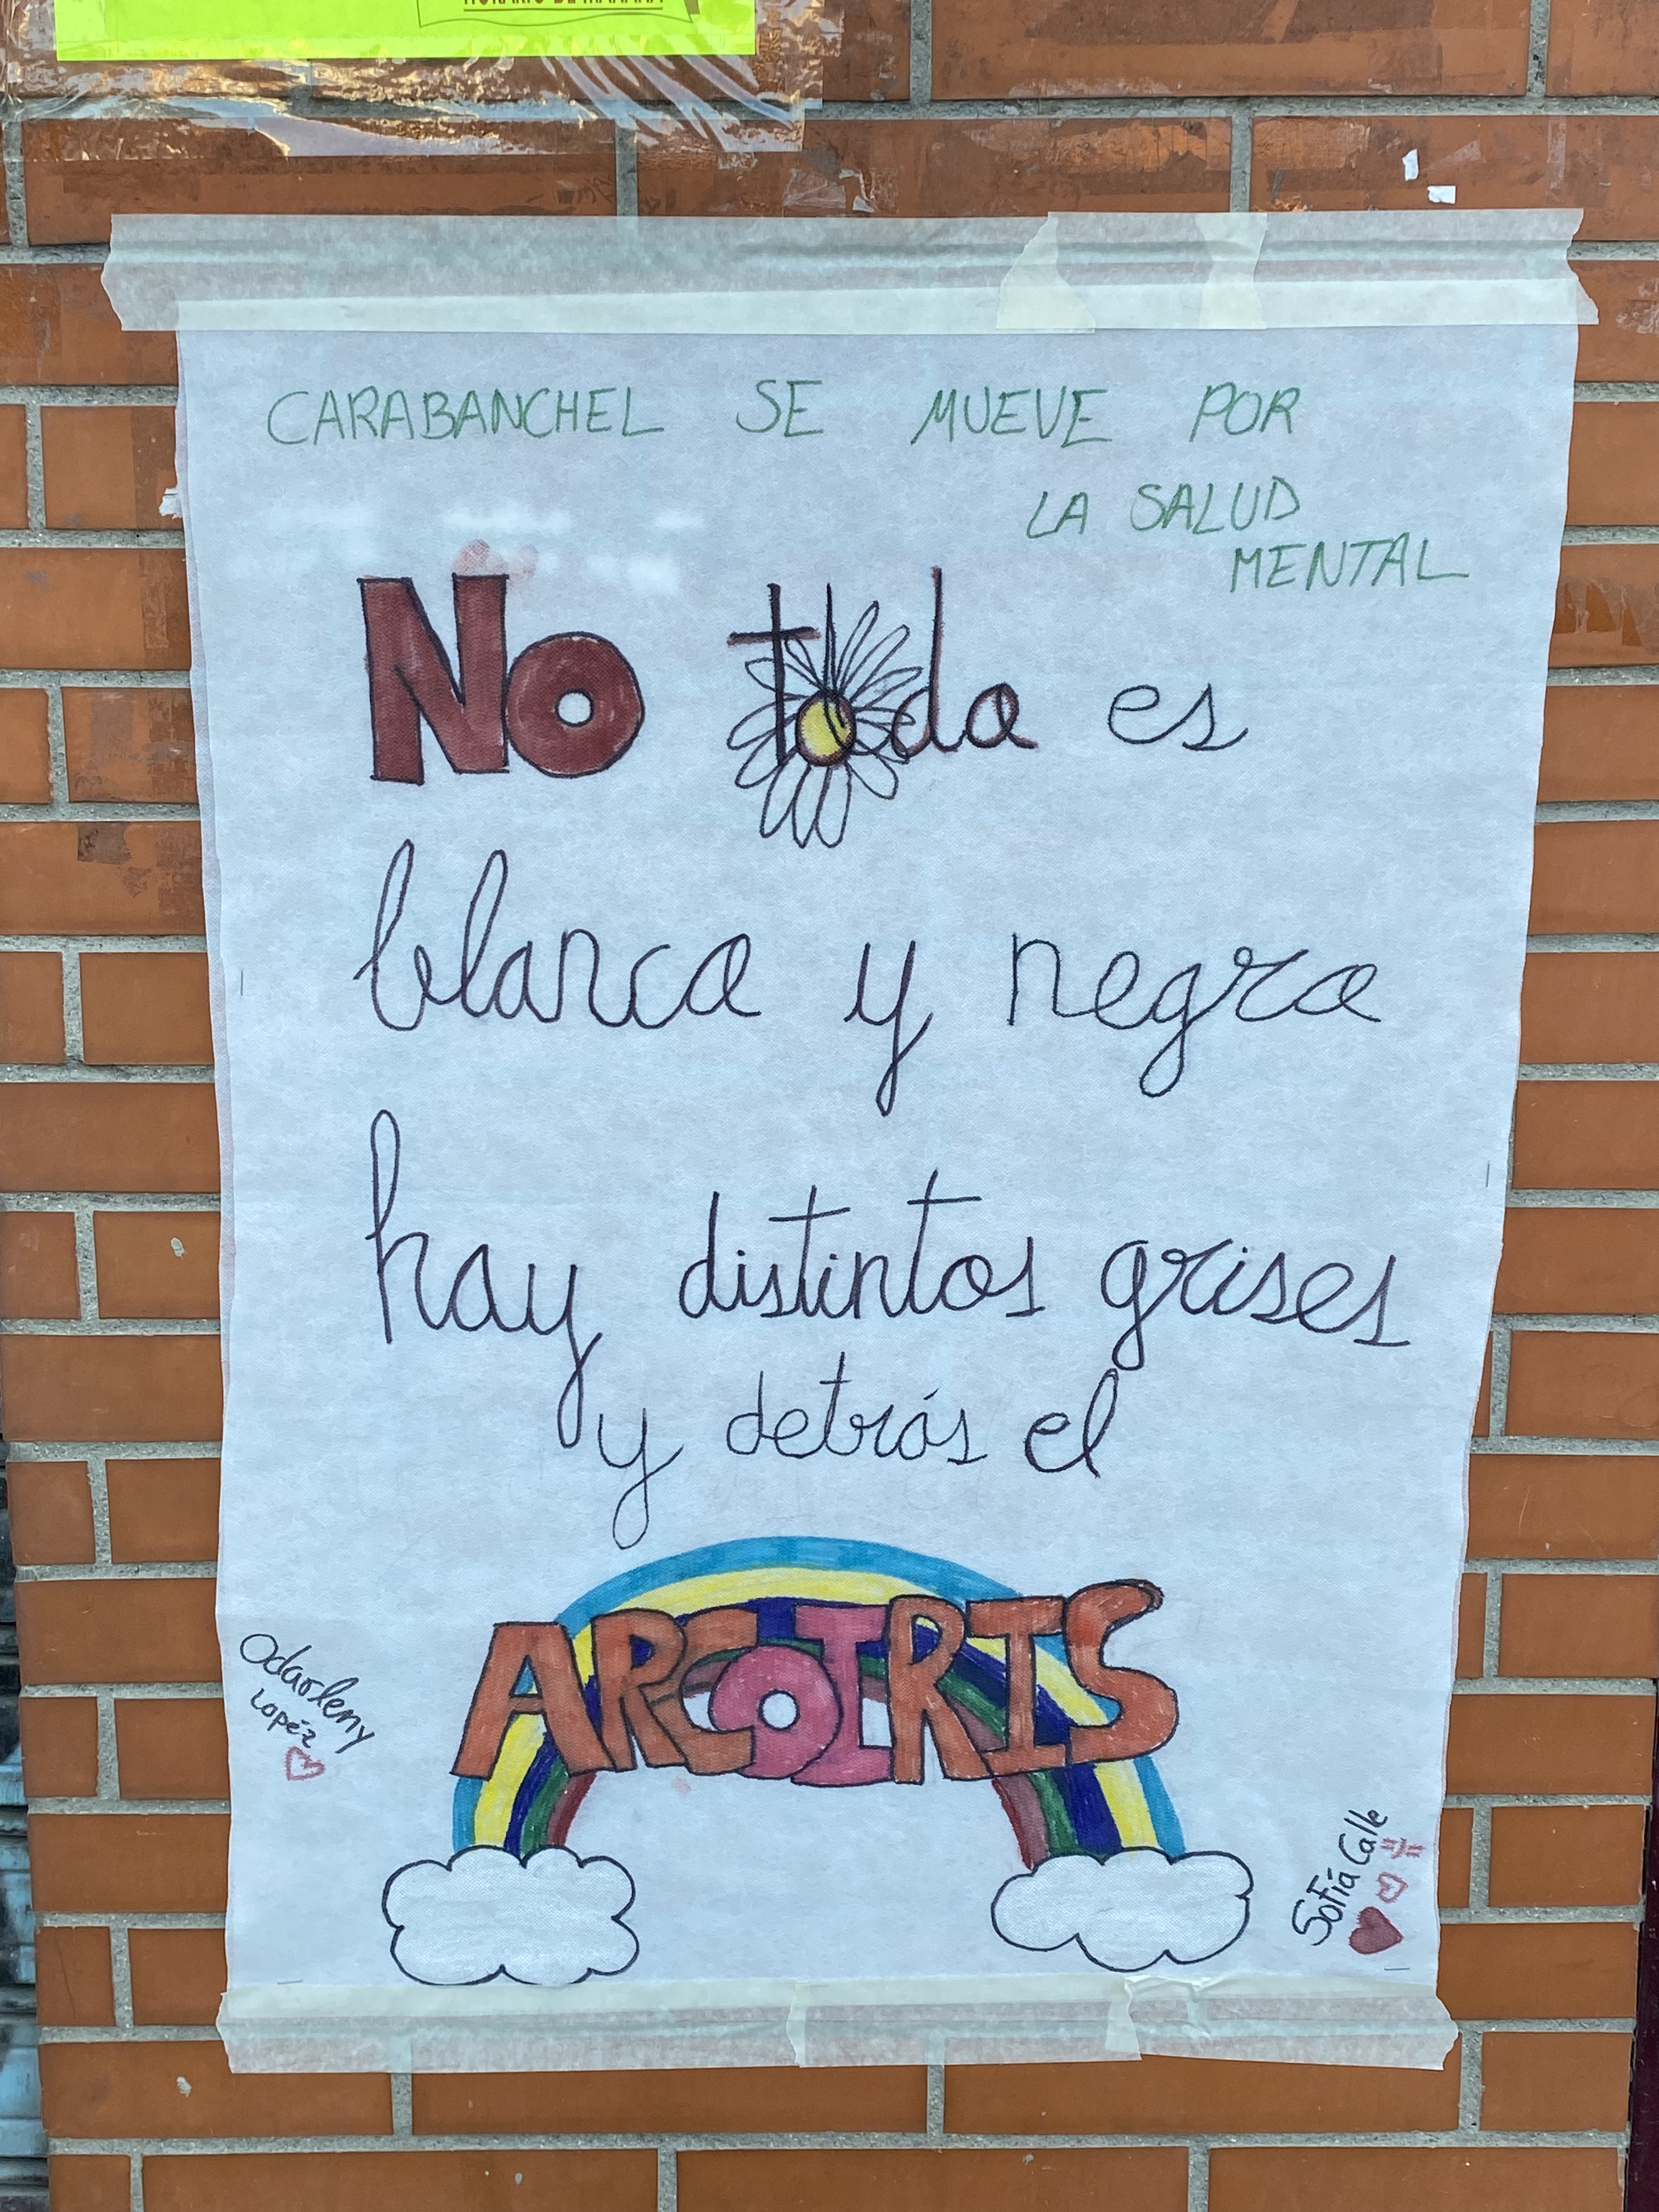 HORARIO DE MAÑANA
CARABANCHEL SE MUEVE POR
LA SALUD
MENTAL
No todo es
blanco y negro
hay distintos grises
y detrás el
ARCOIRIS
Odarleny
Lopéz
Sofía Calle